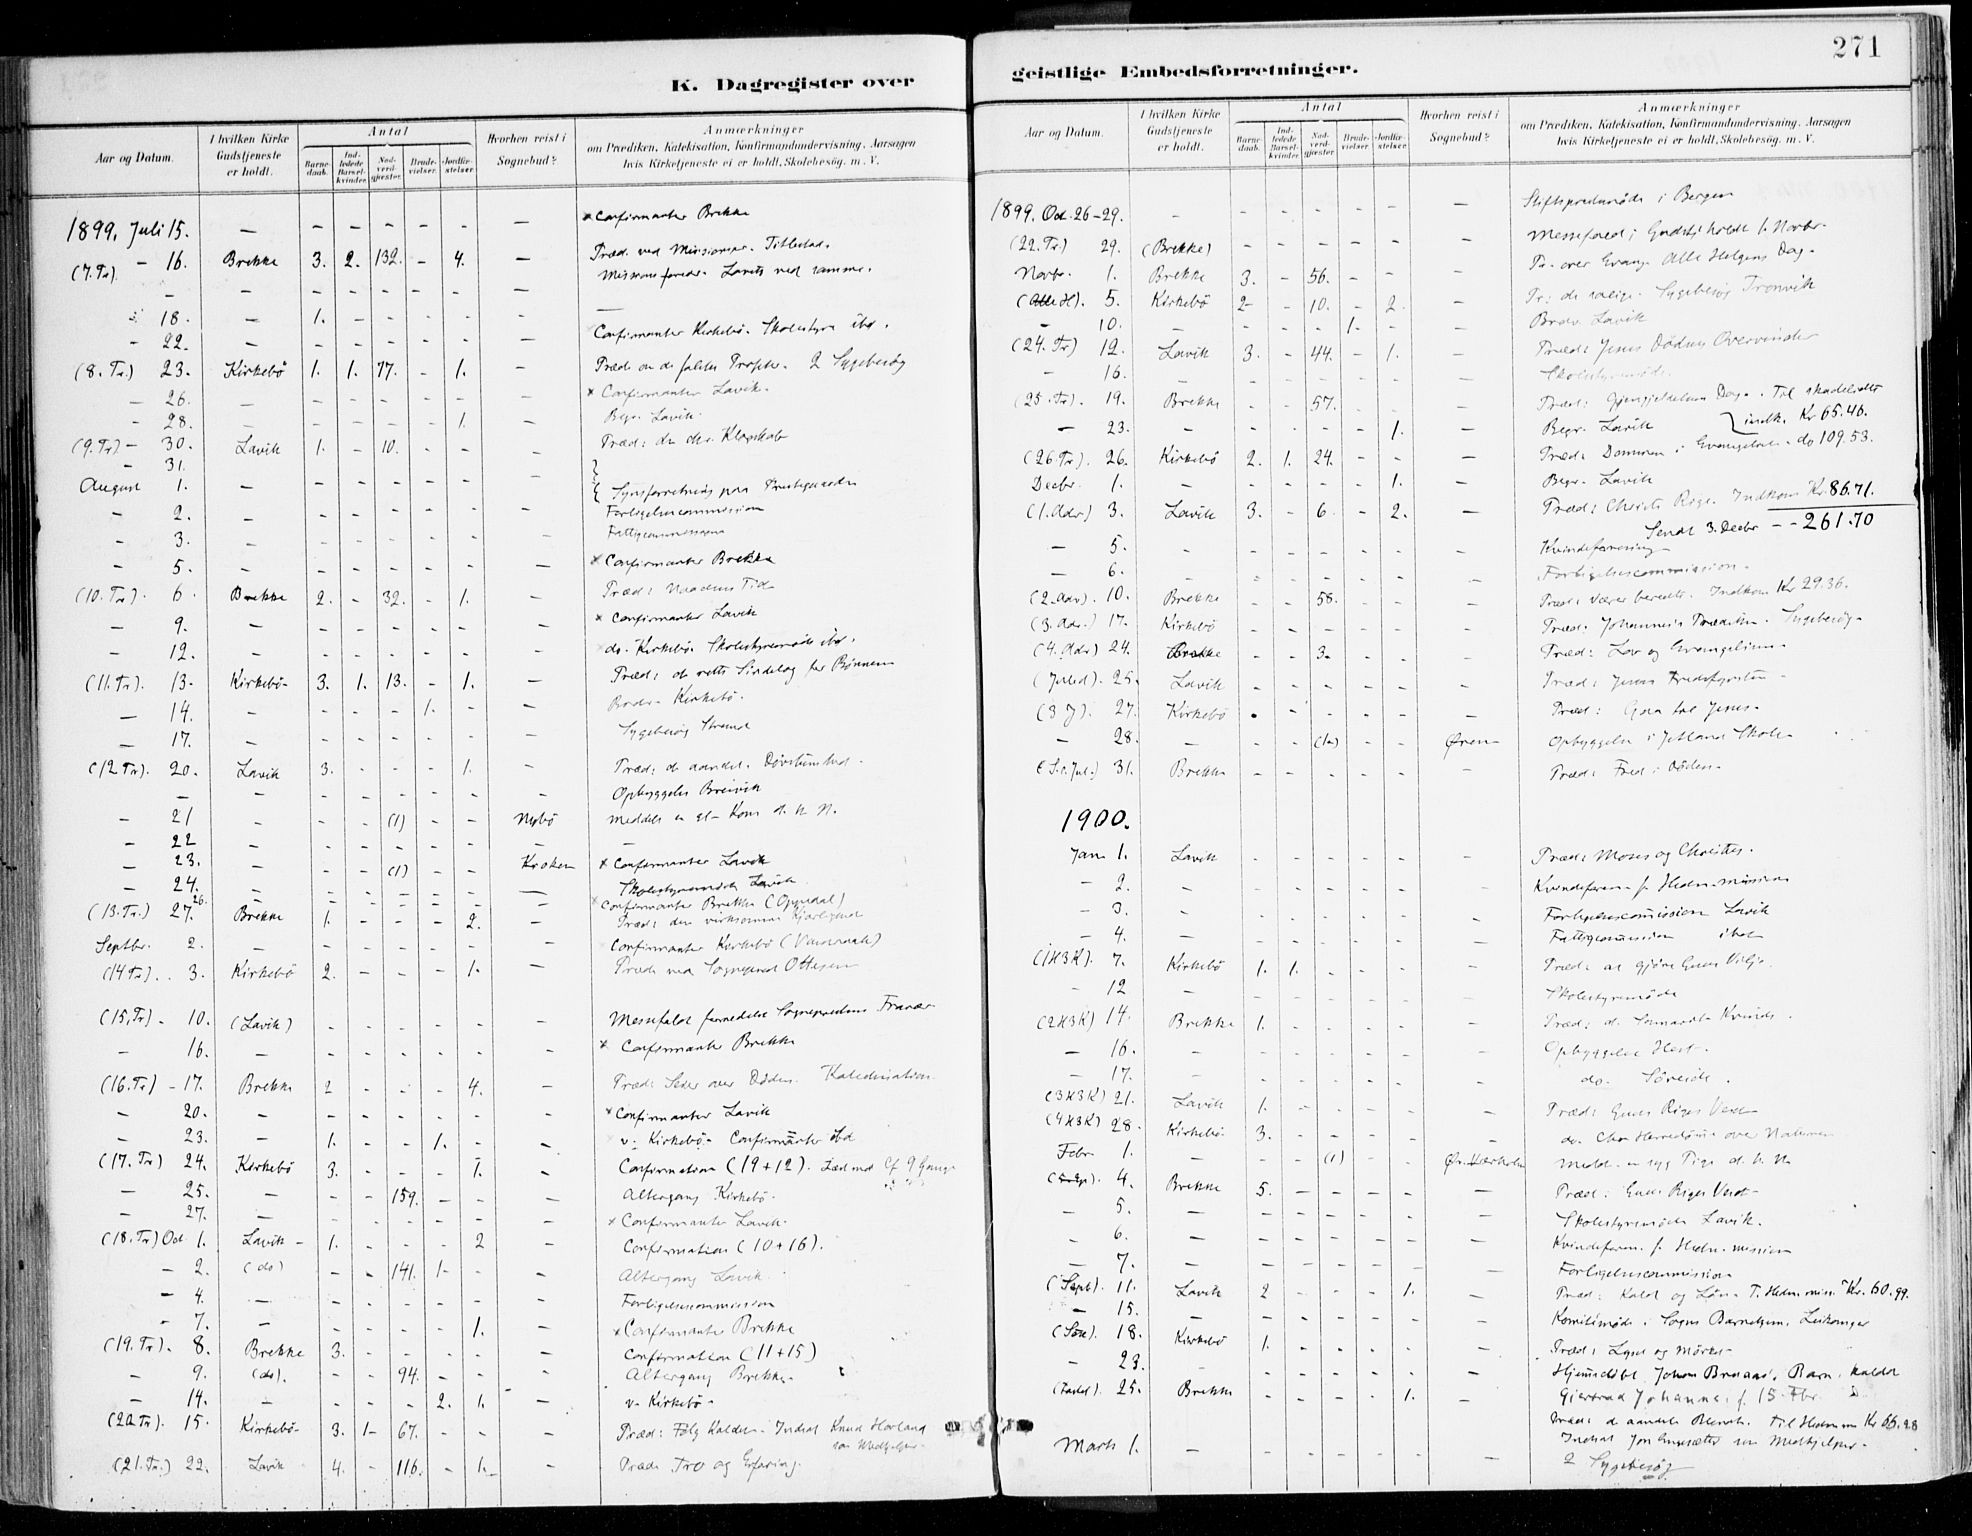 K. Dagregister over
Aar og Datum.
I hvilken Kirke Gudstjeneste er holdt.
Antal
Barnedaab.
Indledede Barselkvinder.
Nadverdgjester.
Brudevielser.
Jordfæstelser.
Hvorhen reist i Sognebud?
Anmærkninger
om Prædiken, Katekisation, Konfirmandundervisning, Aarsagen
hvis Kirketjeneste ei er holdt, Skolebesøg. m. V.
1899. Juli 15. – – – – – – – × Confirmanter Brekke
(7. Tr) – 16. Brekke 3. 2. 132. – 4. – Præd. ved Missionspr. Titlestad.
– – – – – – – – Missionsforedr. Lavik ved samme.
18. – 1. – – – – – –
– 22. – – – – – – – Confirmanter Kirkebø. Skolestyre ibd.
(8. Tr.) 23. Kirkebö 1. 1. 77. – 1. – Præd. om de falske Prophe. 2 Sygebesøg
– 26. – – – – – – – × Confirmanter Lavik.
– 28. – – – – – 1. – Begr. Lavik.
(9. Tr) – 30. Lavik 1. – 10. – – – Præd: den chr. Klogskab
– 31.
August 1. – – – – – – – Synsforretning paa Prestegaarden
– 2. – – – – – – – Forligelsescommission
– 3. – – – – – – – Fattigcommission
– 5. – – – – – – – × Confirmanter Brekke
(10. Tr). 6. Brekke 2. – 32. – 1. – Præd: Naadens Tid
– 9. – – – – – – – × Confirmanter Lavik
– 12. – – – – – – – do. Kirkebø. Skolestyremøde ibd.
(11. Tr). 13. Kirkebö 3. 1. 13. – 1. – Præd: det rette Sindelag for Bønnen
– 14. – – – – 1. – – Brudv. Kirkebø.
– 17. – – – – – – – Sygebesøg
(12 Tr). 20. Lavik 3. – – – 1. – Præd:
– – – – – – – – Opbyggelse Breivik
– 21 – – – (1) – – Nybö meddelt en
– 22 – – – – – – – –
– 23. – – – (1) – – Kroken × Confirmanter Lavik
– 24. – – – – – – – Skolestyremøde Lavik
26. – – – – – – – × Confirmanter Brekke (Oppedal)
(13. Tr.) 27. Brekke 1. – – – 2. – Præd: den virksomme Kjærlighed
Septbr. 2. – – – – – – – Confirmanter Kirkebø
(14 Tr). 3. Kirkebö 2. – – – 1. – Præd. ved Sognepræst Ottesen
(15. Tr) – 10. (Lavik) – – – – – – Messefald formedelst Sognepræstens Fravær
– 16. – – – – – – – × Confirmanter Brekke
(16. Tr) – 17. Brekke 2 – – – 4. – Præd: Seier over Døden. Katechisation
– 20. – – – – – – – × Confirmanter Lavik
– 23. – 1. – – 1. – – v. Kirkebø. Confirmanter ibd
(17. Tr) 24. Kirkebö 3. – – – 1. – Confirmation (19 + 12).
– 25. – – – 159. – – – Altergang Kirkebø.
– 27. – – – – – – – × Confirmanter Lavik.
(18. Tr) Oct 1. Lavik – 1. – – – 2 – Confirmation (10 + 16).
– 2. (do) – – 141. 1. – – Altergang Lavik.
– 4. – – – – – – – Forligelsescommission
– 7. – – – – – 1. – × Confirmanter Brekke
(19. Tr). 8. Brekke 3. – – – – – Confirmation (11 + 15)
– 9. (do). – – 94. – – – Altergang Brekke.
– 14. – – – – 2. 1. – v. Kirkebø.
(20. Tr). 15. Kirkebö 3. 1. 67. – – – Præd: Følg Kaldet. Indsat Knud Hovland
som Medhjelper.
(21. Tr.) 22. Lavik 4. – 116. – 1. – Præd: Tro og Erfaring.
271
geistlige Embedsforretninger.
Aar og Datum.
I hvilken Kirke Gudstjeneste er holdt.
Antal
Barnedaab.
Indledede Barselkvinder.
Nadverdgjester.
Brudevielser.
Jordfæstelser.
Hvorhen reist i Sognebud?
Anmærkninger
om Prædiken, Katekisation, Konfirmandundervisning, Aarsagen
hvis Kirketjeneste ei er holdt, Skolebesøg. m. V.
1899. Oct. 26–29. – – – – – – – Stiftspræstemøde i Bergen
(22. Tr.) 29. (Brekke) – – – – – – Messefald; Gudstj. holdt 1. Novbr.
Novbr. 1. Brekke 3. – 56. – – – Pr. over Evang. Alle Helgens Dag.
(Alle H). 5. Kirkebö 2 – 10. – 2. – Pr: de salige. Sygebesøg Tronvik
– 10. – – – – 1. – – Brudv. Lavik
(24. Tr) 12. Lavik 3. – 44. – 1. – Præd: Jesus Dødens Overvinder
– 16. – – – – – – – Skolestyremøde.
(25. Tr). 19. Brekke – – 57. – – – Præd: Gjengjeldelsens Dag. Til skadelidte
– 23. – – – – – 1. – Begr. Lavik indk. Kr 65.46.
(26 Tr). 26. Kirkebö 2. 1. 24. – – – Præd: Dommen i Evangeliet. do 109.53.
Decbr. 1. – – – – – 1. – Begr. Lavik
(1. Adv) 3. Lavik 3. – 6. – 2. – Præd: Christi Rige. Indkom Kr. 86.71.
Sendt 3. Decbr – – 261.70
– 5. – – – – – – – Kvindeforening
– 6. – – – – – – – Forligelsescommission.
(2. Adv). 10. Brekke – – 58. – – – Præd: Værer beredte. Indkom Kr 29.36.
(3. Adv.) 17. Kirkebö – – – – – – Præd. Johannes's Prædiken. Sygebesøg.
(4. Adv) 24. Brekke – – 3. – – – Præd: Lov og Evangelium.
(Juled). 25. Lavik – – – – – – Præd: Jesus Fredsfyrsten
(3 J). 27. Kirkebö – – – – – – Præd:
– 28. – – – (1) – – Øren Opbyggelse i Jetland Skole
(S. e. Jul.) 31. Brekke – – – – – – Præd: Fred i Døden.
1900.
Jan. 1. Lavik – – – – – – Præd: Moses og Christus.
– 2. – – – – – – – Kvindeforen. f. Hedn. mission
– 3. – – – – – – – Forligelsescommission Lavik
– 4. – – – – – – – Fattigcommission ibd
(1H3K). 7. Kirkebö 1. 1. – – – – Præd: at gjøre Guds Vilje.
– 12 – – – – – – – Skolestyremøde
(2H3K) 14. Brekke 1. – – – – – Præd: d. Samarit. Kvinde.
– 16. – – – – – – – Opbyggelse Hest.
– 17. – – – – – – – do. Søreide.
(3H3K) 21. Lavik 1. – – – – – Præd: Guds Riges Vext
(4H3K) 28. Kirkebö. 3. – – – – – do. Chr. Herredømme over Naturen
Febr. 1. – – – (1) – – Medd. en syg Pige d. h. N.
4. Brekke 5. – – – – – Præd: Guds Riges Vext.
– 5. – – – – – – – Skolestyremøde Lavik.
– 6. – – – – – – – Kvindeforen. f. Hedn. mission
– 7. – – – – – – – Forligelsescommission
(Sept). 11. Lavik 2 – – – 1. – Præd: Kald og Løn. T. Hedn. miss. Kr. 60.99.
– 15. – – – – – – – Komitemøde i Sogns Barnehjem, Leikanger
(Sex). 18. Kirkebö 1. – – – – – Præd: Lyset og Mørket
– 23. – – – – – – – Hjemmedøbt Barn kaldt
Johanne, f. 15 Fbr.
(Fastel). 25. Brekke – – – – 1. – Præd: Til Hedn. m Kr 66.28
Indsat som Medhjelper.
Marts 1. – – – – – – – 2 Sygebesøg